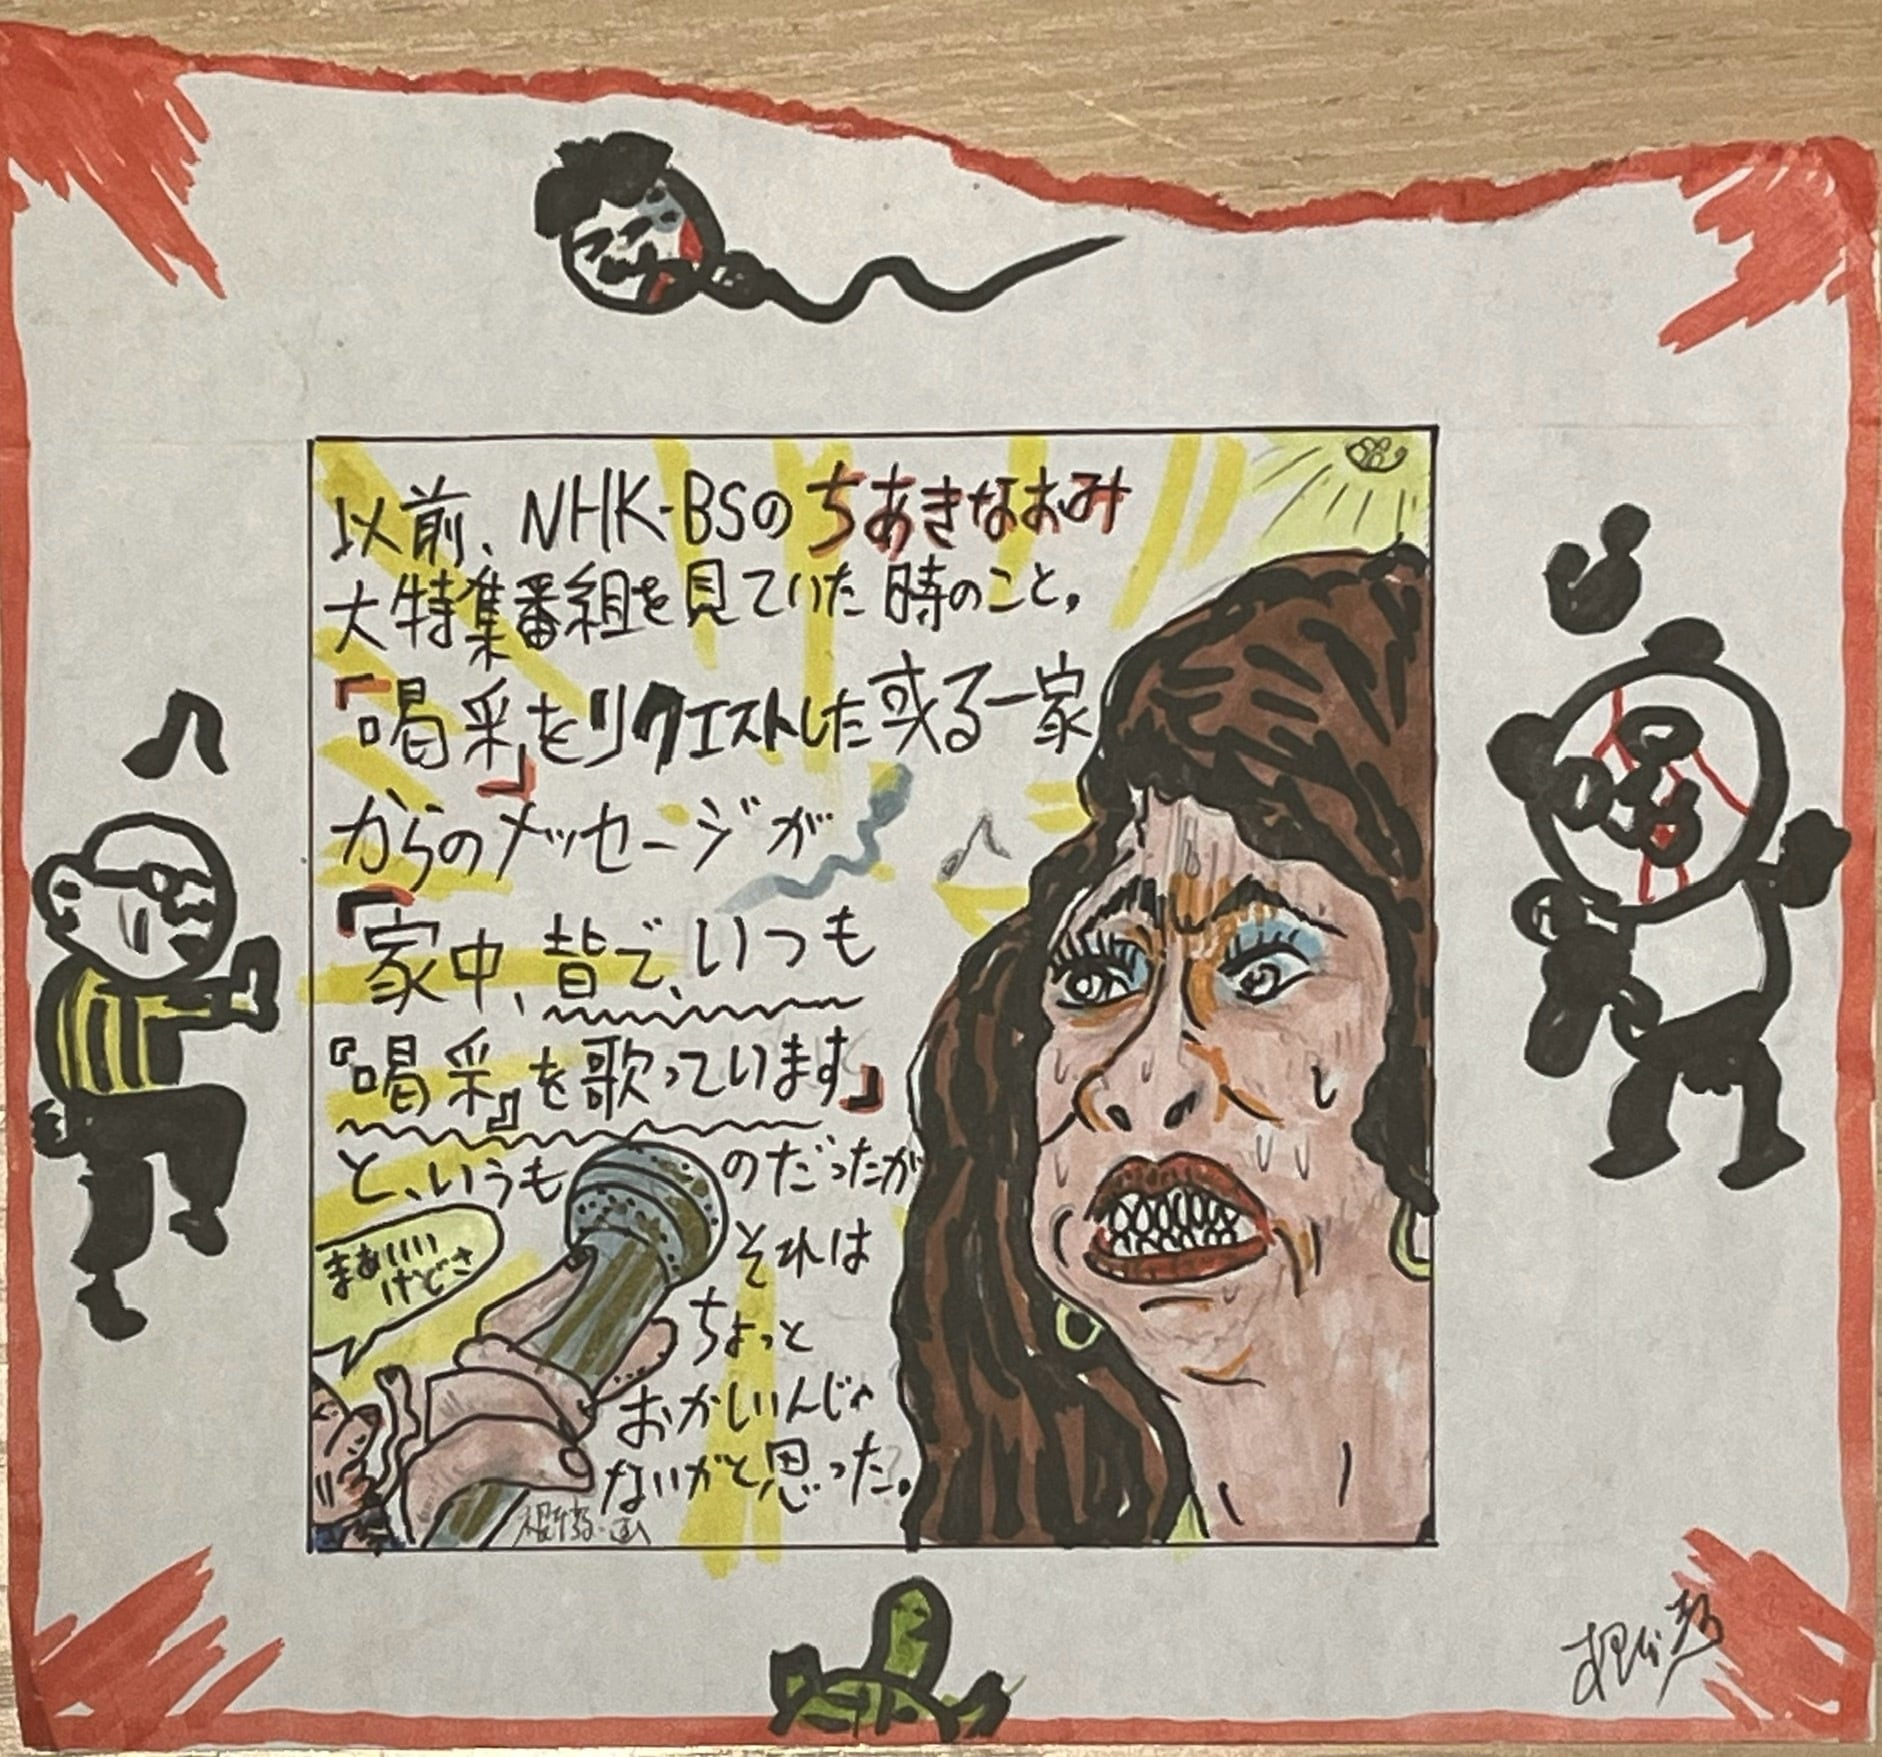 以前、NHK-BSのちあきなおみ
大特集番組を見ていた時のこと。
「喝采」をリクエストした或る一家
からのメッセージが
「家中、皆で、いつも
『喝采』を歌っています」
と、いうものだったが
それは
ちょっと
おかしいんじゃ
ないかと思った。
まあいい
けどさ